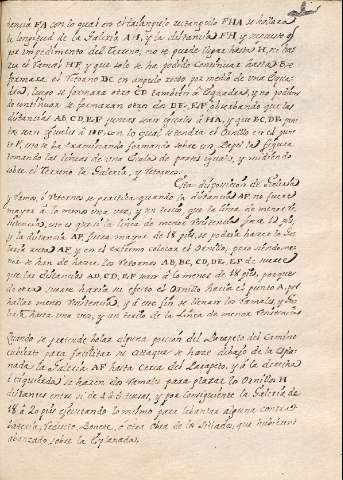 tancia FA con lo qual en el triangulo rectangulo FHA se hallara
la longitud de la Galeria AH, y la distancia FH y respecto q.e
por impedimento del Terreno, no se puede llegar hasta H, ni
el Ramal HF, y que solo se ha podido continuar hasta B se
formara el retorno BC en angulo recto por medio de una Esqua-
dra, luego se formara otro CD tambien a Esquadra, y no pudien-
do continuar se formaran otros dos DE, EF observando que las
distancias AB, CD, EF juntas sean iguales â HA, y que BC, DE jun-
tas sean iguales â HF con lo qual se tendra el Ornillo en el pun-
to F, que se ha examinando formando sobre un Papel la figura
tomando las lineas de una Escala de partes iguales, y midiendo
sobre el Terreno la Galeria, y retornos.
Esta disposicion de Galeria
y Ramos, ô retornos se practica quando la distancia AF no fuere
mayor a lo menos una vez, y un tercio que la linea de menor re-
sistencia, esto es que si la linea de menor resistencia fuere 12 pies,
y la distancia AF, fuere mayor de 18 pies, se podrîa hacer la Ga-
leria recta AF y en el extremo colocar el Ornillo, pero siendo me-
nor se han de hacer los retornos AB, BC, CD, DE, EF de suerte
que las distancias AB, CD, EF sean a lo menos de 18 pies, porque
de otra suerte haria su efecto el Ornillo hacia el punto A por
hallar menos resistencia, y â este fin se llenan los ramales, y Ga-
leria hasta una vez, y un tercio de la Linea de menor resistencia
Quando se pretende bolar alguna porcion del Parapeto del Camino
cubierto para facilitar su ataque se hace debajo de la Expla-
nada la Galeria AF hasta cerca del Parapeto, y â la derecha
ê izquierda se hacen dos ramales para plazar los Ornillos H
distantes entre si de 4 â 5 tuesas, y por consiguiente la Galeria de
18 â 20 pies ejecutando lo mismo para lebantar alguna contra-
bateria, Reducto, Bonete, ô otra obra de los Sitiados, que hubieren
abanzado sobre la Explanada.